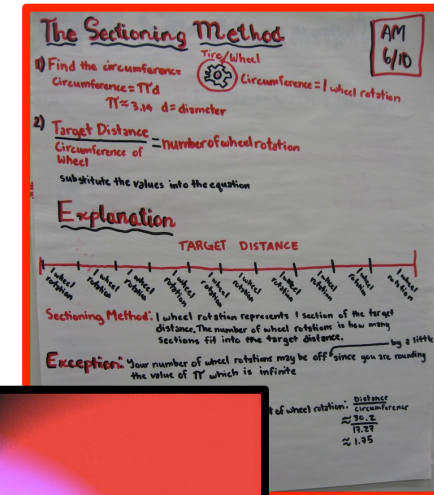 The Sectioning Method
AM
6/10
Tire/Wheel
1) Find the circumference
Circumference = πd
π≈3.14 d=diameter
Circumference = 1 wheel rotation
2) Target Distance
Circumference of Wheel
= number of wheel rotation
substitute the values into the equation
Explanation
TARGET DISTANCE
1 wheel rotation
1 wheel rotation
wheel rotation
1 wheel rotation
1 wheel rotation
1 wheel rotation
1 wheel rotation
1 wheel rotation
1 wheel rotation
1 wheel rotation
Sectioning Method: 1 wheel rotation represents 1 section of the target
distance. The number of wheel rotations is how many
sections fit into the target distance.
by a little
Exception: Your number of wheel rotations may be off since you are rounding
the value of π which is infinite
of wheel rotation: Distance
Circumference
≈ 30.2
17.27
≈ 1.75